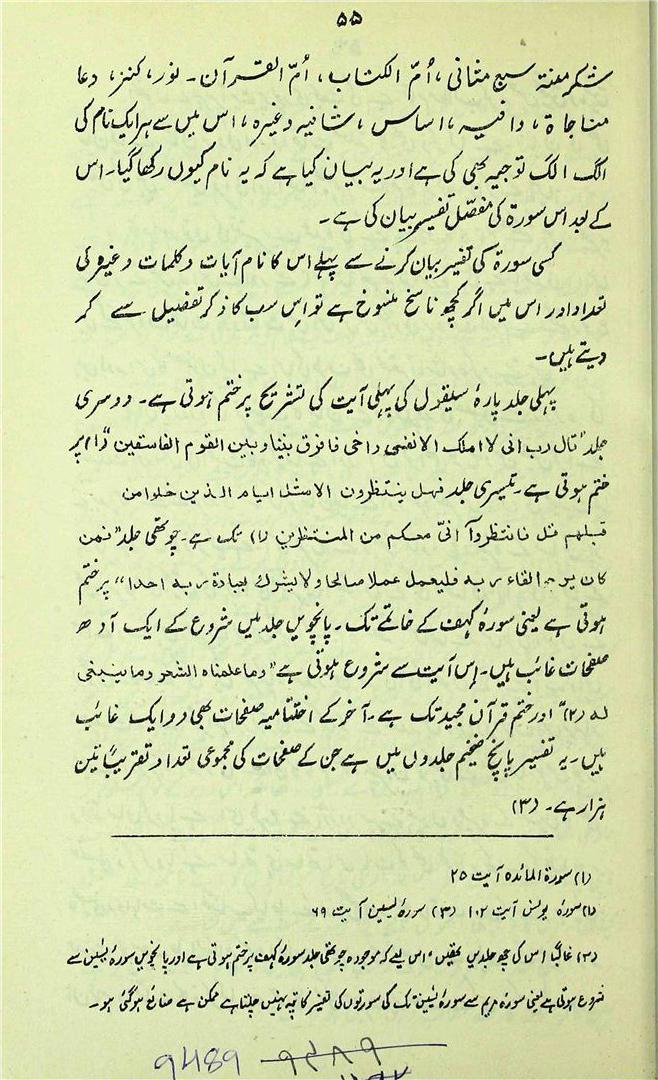 ۵۵
شکر معنۃ سبع مثانی، اُمّ الکتاب، اُمّ القرآن۔ نور، کنز، دعا
مناجاۃ، دافیہ، اساس، شافیہ وغیرہ، اس میں سے ہر ایک نام کی
الگ الگ توجیہ بھی کی ہے اور یہ بیان کیا ہے کہ یہ نام کیوں رکھا گیا۔ اس
کے بعد اس سورۃ کی مفصّل تفسیر بیان کی ہے۔
کسی سورۃ کی تفسیر بیان کرنے سے پہلے اس کا نام آیات و کلمات وغیرہ کی
تعداد اور اس میں اگر کچھ ناسخ منسوخ ہے تو اس سب کا ذکر تفصیل سے کر
دیتے ہیں۔
پہلی جلد پارۂ سیقول کی پہلی آیت کی تشریح پر ختم ہوتی ہے۔ دوسری
جلد "قال رب انی لا املک الا نفسی واخی فافرق بیننا وبین القوم الفاسقین" (۱) پر
ختم ہوتی ہے۔ تیسری جلد فہل ینتظرون الا مثل ایام الذین خلوا من
قبلہم قل فانتظروآ انیّ معکم من المنتظرین (۱) تک ہے۔ چوتھی جلد "فمن
کان یرجو القاء ربہ فلیعمل عملا صالحا ولا یشرک بعبادۃ ربہ احدا" پر ختم
ہوتی ہے یعنی سورۂ کہف کے خاتمے تک۔ پانچویں جلد میں شروع کے ایک آدھ
صفحات غائب ہیں۔ اِس آیت سے شروع ہوتی ہے "وما علمناہ الشعر وما ینبغی
لہ (۲)" اور ختم قرآن مجید تک ہے۔ آخر کے اختتامیہ صفحات بھی دو ایک غائب
ہیں۔ یہ تفسیر پانچ ضخیم جلدوں میں ہے جن کے صفحات کی مجموعی تعداد تقریباً تین
ہزار ہے۔ (۳)
(۱) سورۃ المائدہ آیت ۲۵
(۱) سورۂ یونس آیت ۱۰۲ (۳) سورۂ یٰسین آیت ۶۹
(۳) غالباً اس کی چھ جلدیں تھیں، اس لیے کہ موجودہ چوتھی جلد سورۂ کہف پر ختم ہوتی ہے اور پانچویں سورۂ یٰسین سے
شروع ہوتی ہے یعنی سورۂ مریم سے سورۂ یٰسین تک کی سورتوں کی تفسیر کا پتہ نہیں چلتا ہے ممکن ہے ضائع ہو گئی ہو۔
9489